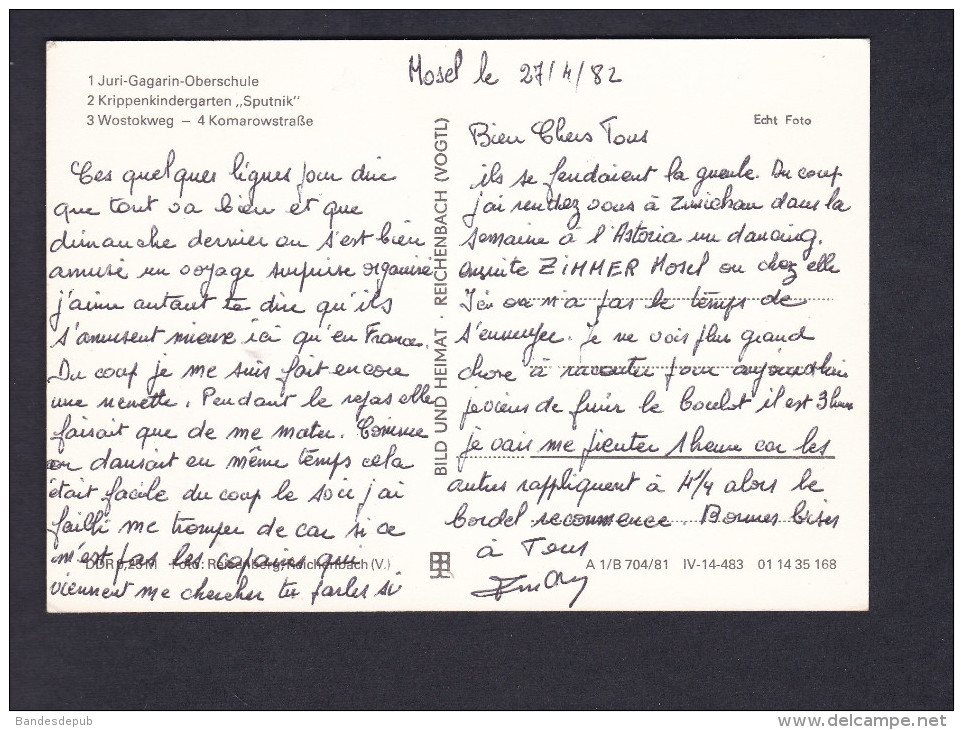 Mosel le 27/4/82
1 Juri-Gagarin-Oberschule
2 Krippenkindergarten „Sputnik"
3 Wostokweg – 4 Komarowstraße
Echt Foto
Bien Chers Tous
Ces quelques lignes pour dire
que tout va bien et que
dimanche dernier on s'est bien
amusé un voyage surprise organisé
j'aime autant te dire qu'ils
s'amusent mieux ici qu'en France.
Du coup je me suis fait encore
une nenette. Pendant le repas elle
faisait que de me mater. Comme
on dansait en même temps cela
était facile du coup le soir j'ai
failli me tromper de car si ce
n'est pas les copains qui
viennent me chercher tu parles si
ils se fendaient la gueule. Du coup
j'ai rendez vous à Zwickau dans la
semaine à l'Astoria un dancing.
ensuite ZIMMER Mosel ou chez elle
Ici on n'a pas le temps de
s'ennuyer. Je ne vois plus grand
chose à raconter pour aujourd'hui
je viens de finir le boulot il est 3 heures
je vais me pieuter 1 heure car les
autres rappliquent à 4 1/4 alors le
bordel recommence. Bonnes bises
à Tous
BILD UND HEIMAT · REICHENBACH (VOGTL)
DDR 0,25 M Foto: Reisenberg, Reichenbach (V.)
A 1/B 704/81 IV-14-483 01 14 35 168
Bandesdepub
www.delcampe.net